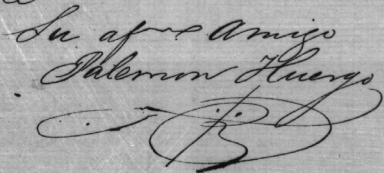 Su afmo Amigo
Palemon Huergo